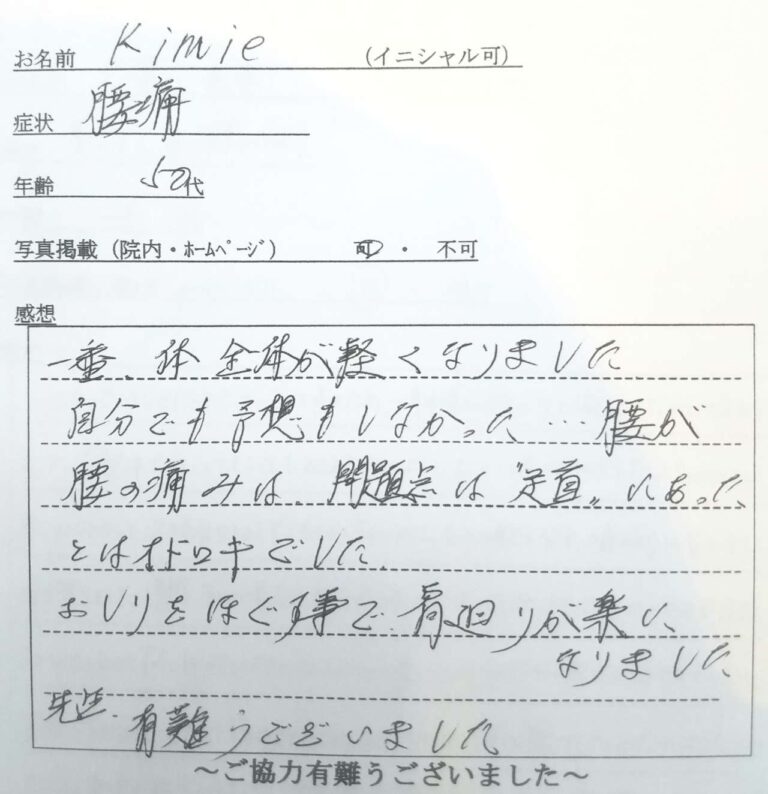 お名前 Kimie (イニシャル可)
症状 腰痛
年齢 50代
写真掲載 (院内・ホームページ) 可 ・ 不可
感想
一番、体全体が軽くなりました
自分でも予想もしなかった…腰が
腰の痛みは 問題点は "足首" にあった
とはオドロキでした.
おしりをほぐす事で、肩廻りが楽に
なりました
先生.有難うございました
～ご協力有難うございました～